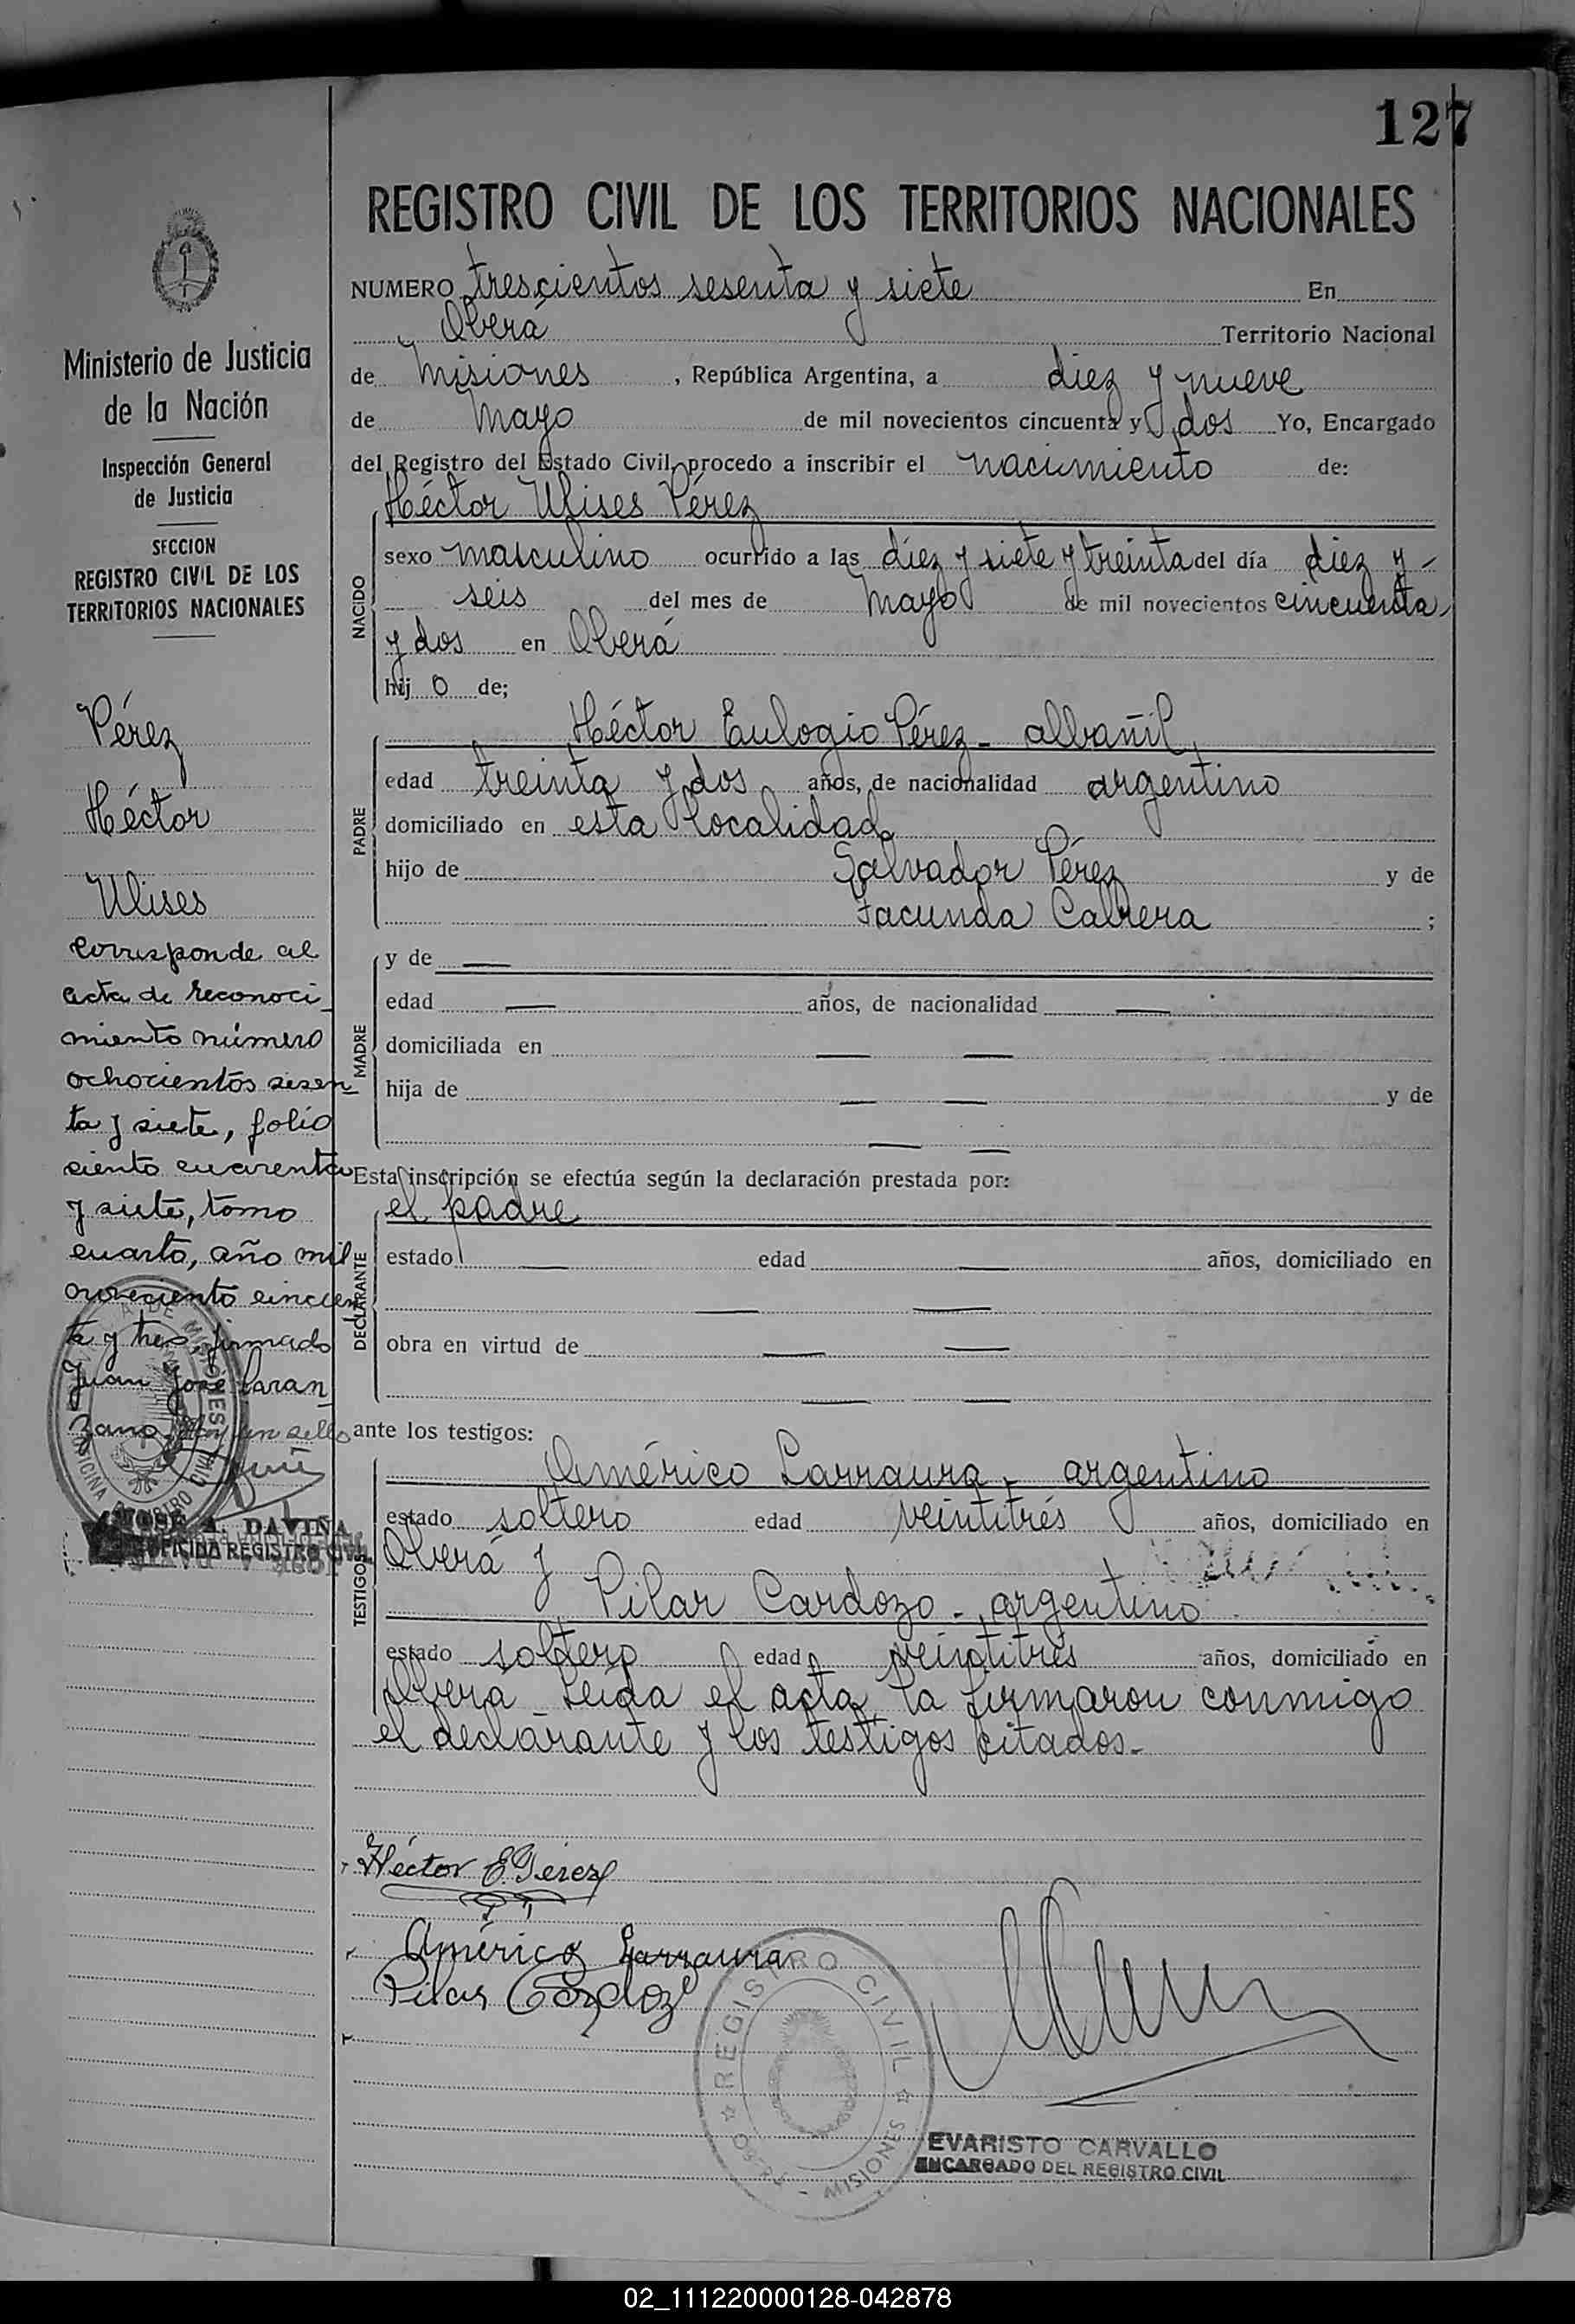 127
REGISTRO CIVIL DE LOS TERRITORIOS NACIONALES
NUMERO trescientos sesenta y siete En
Oberá Territorio Nacional
de Misiones, República Argentina, a diez y nueve
de Mayo de mil novecientos cincuenta y dos Yo, Encargado
del Registro del Estado Civil, procedo a inscribir el nacimiento de:
Héctor Ulises Pérez
NACIDO
sexo masculino ocurrido a las diez y siete y treinta del día diez y -
seis del mes de Mayo de mil novecientos cincuenta
y dos en Oberá
hij o de;
Héctor Eulogio Pérez - albañil,
PADRE
edad treinta y dos años, de nacionalidad argentino
domiciliado en esta localidad
hijo de Salvador Pérez y de
Facunda Cabrera ;
MADRE
y de —
edad — años, de nacionalidad —
domiciliada en — —
hija de — — y de
— —
Esta inscripción se efectúa según la declaración prestada por:
el padre
DECLARANTE
estado — edad — años, domiciliado en
— —
obra en virtud de — —
— —
ante los testigos:
Américo Larraura, argentino
TESTIGOS
estado soltero edad veintitrés años, domiciliado en
Oberá y
Pilar Cardozo - argentino
estado soltero edad veintitrés años, domiciliado en
Oberá Leída el acta, la firmaron conmigo
el declarante y los testigos citados.-
Héctor E. Pérez
Américo Larraura
Pilar Cardozo
REGISTRO CIVIL
MISIONES
EVARISTO CARVALLO
ENCARGADO DEL REGISTRO CIVIL
Ministerio de Justicia
de la Nación
Inspección General
de Justicia
SECCION
REGISTRO CIVIL DE LOS
TERRITORIOS NACIONALES
Pérez
Héctor
Ulises
Corresponde al
acta de reconoci
miento número
ochocientos sesen
ta y siete, folio
ciento cuarenta
y siete, tomo
cuarto, año mil
noveciento cincuen
ta y tres, firmado
Juan José Laran
zano. Hay un sello
JOSE A. DAVIÑA
OFICINA REGISTRO CIVIL
02_111220000128-042878